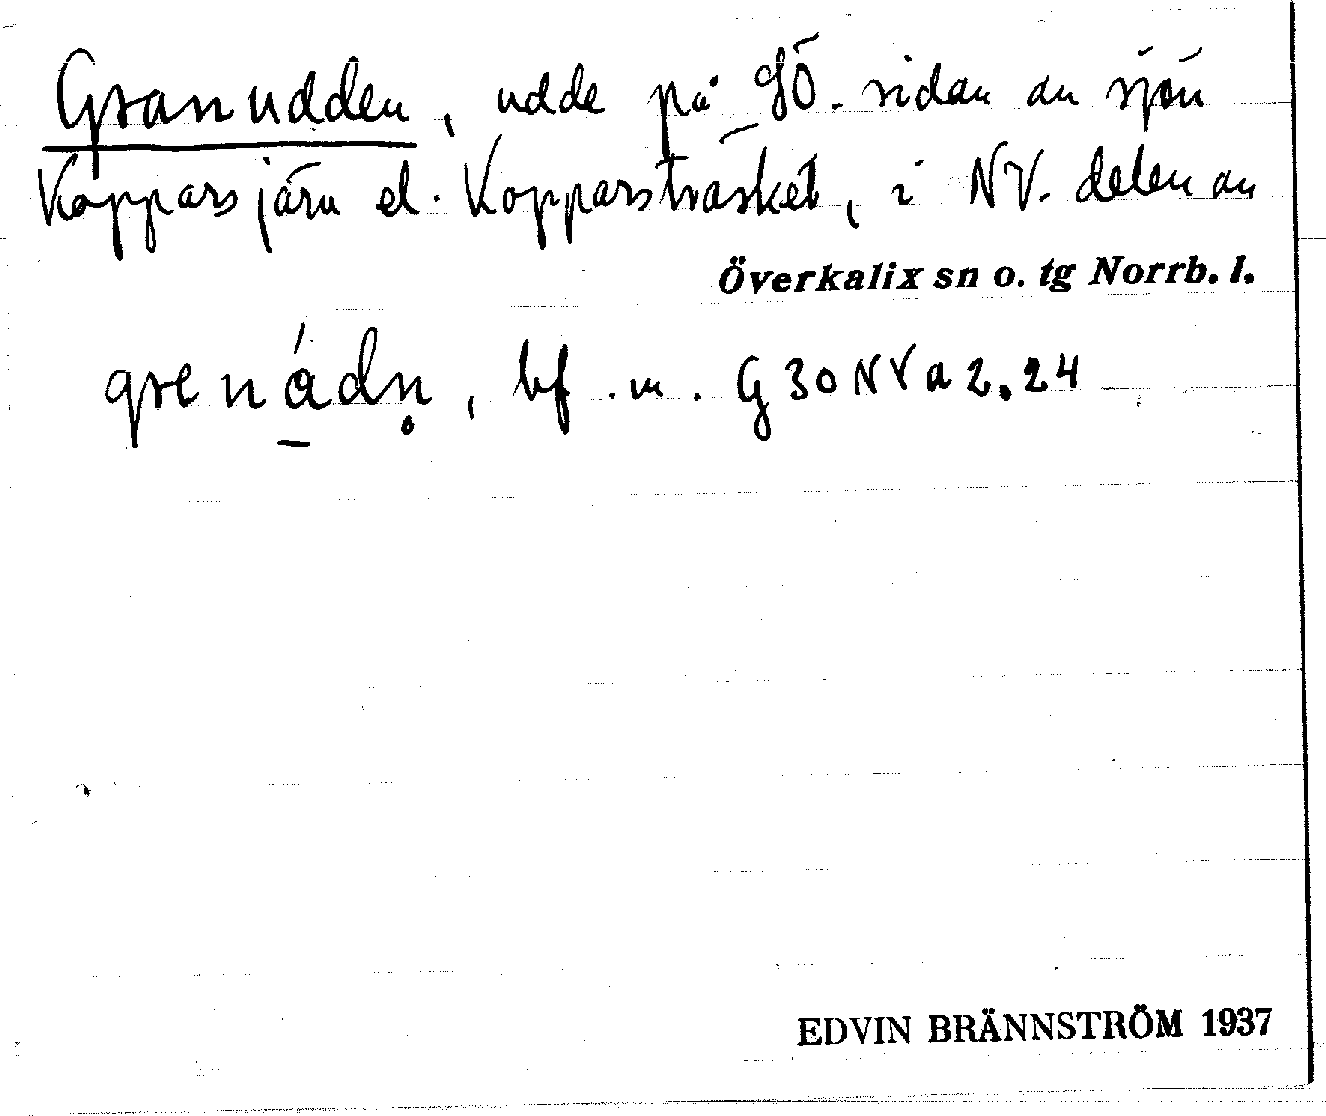 Granudden, udde på SÖ. sidan av sjön
Kopparsjärn el. Kopparsträsket, i NV. delen av
Överkalix sn o. tg Norrb. l.
grenádn̥, bf. m. G 30 NV a 2.24
EDVIN BRÄNNSTRÖM 1937